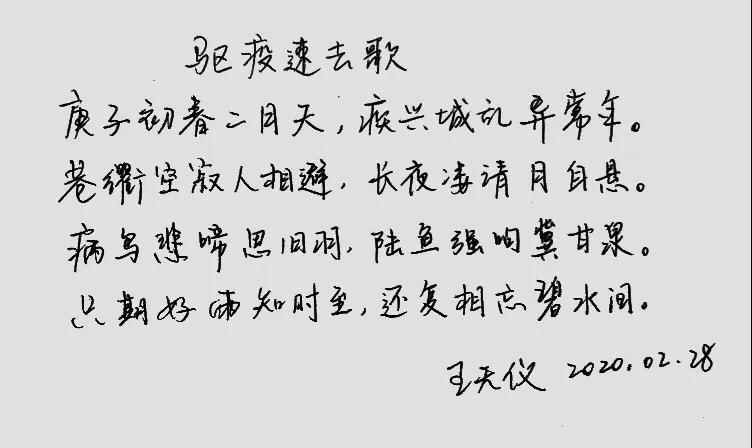 驱疫速去歌
庚子初春二月天，疾兴城乱异常年。
巷衢空寂人相避，长夜凄清月自悬。
病鸟悲啼思旧羽，陆鱼强呴冀甘泉。
只期好雨知时至，还复相忘碧水间。
王天仪 2020.02.28